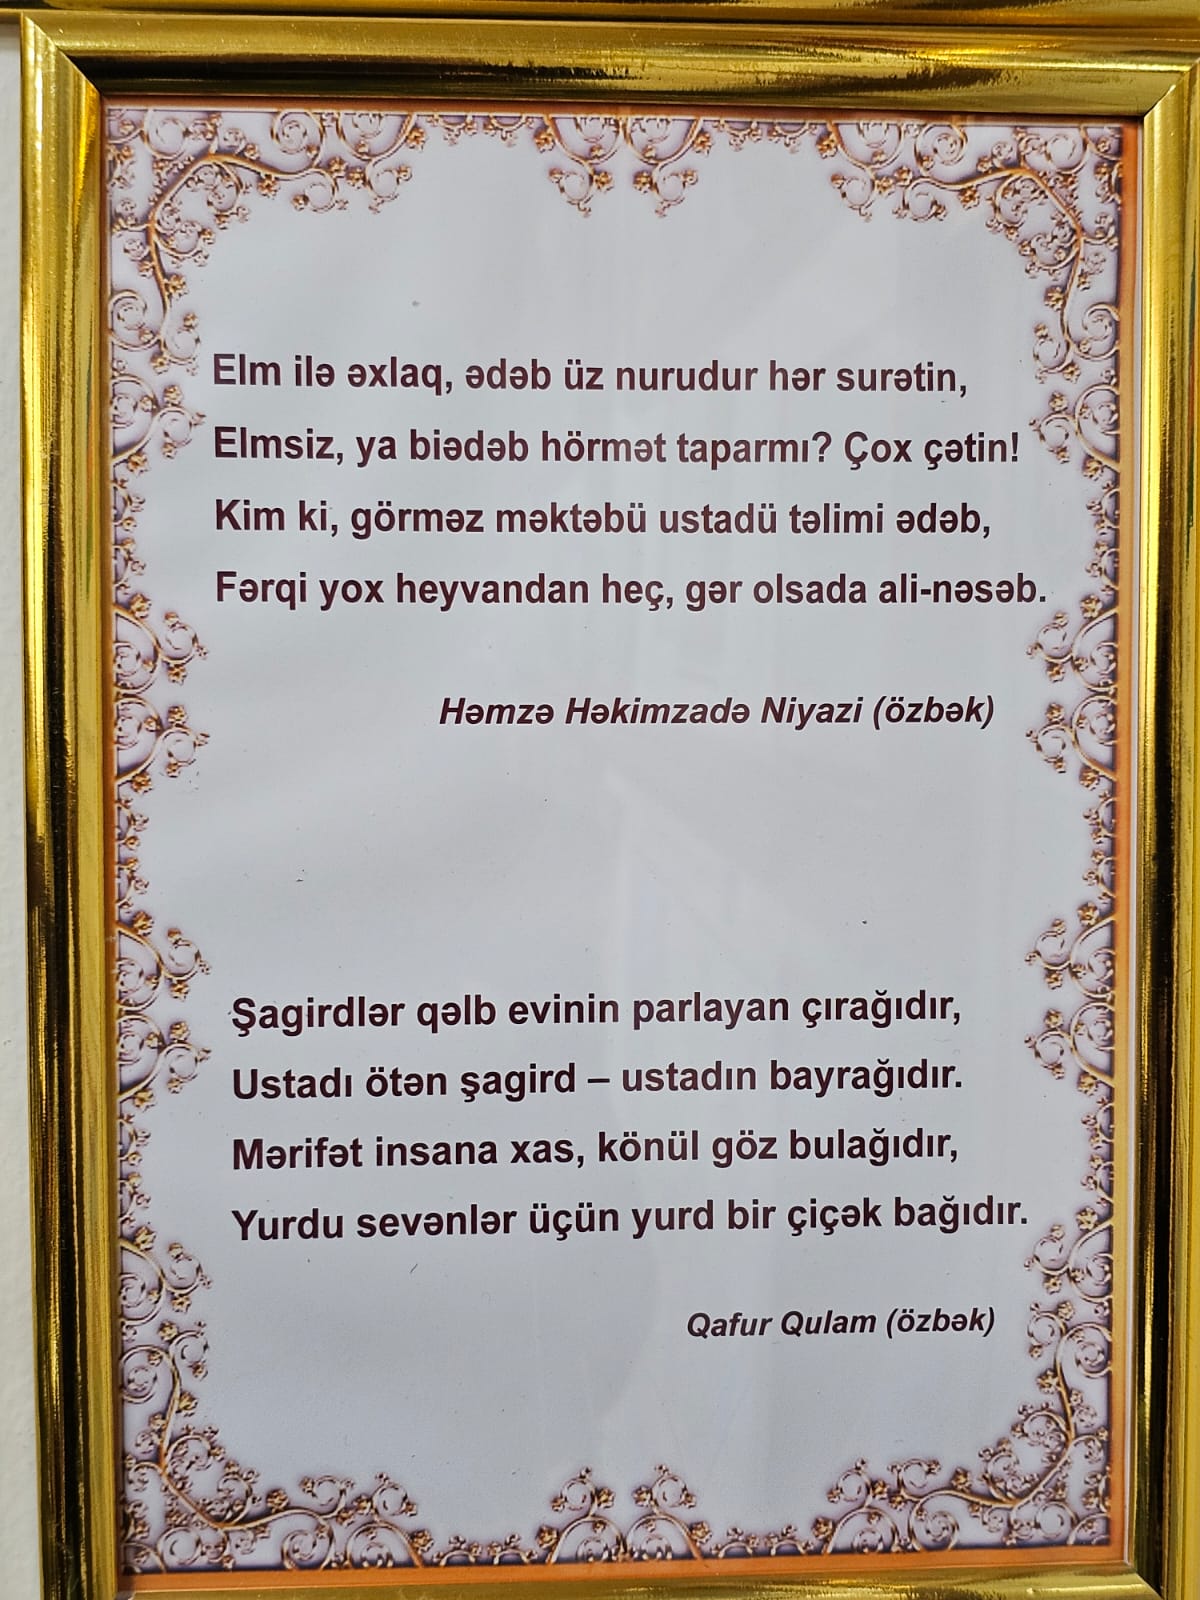 Elm ilə əxlaq, ədəb üz nurudur hər surətin,
Elmsiz, ya biədəb hörmət taparmı? Çox çətin!
Kim ki, görməz məktəbü ustadü təlimi ədəb,
Fərqi yox heyvandan heç, gər olsada ali-nəsəb.
Həmzə Həkimzadə Niyazi (özbək)
Şagirdlər qəlb evinin parlayan çırağıdır,
Ustadı ötən şagird – ustadın bayrağıdır.
Mərifət insana xas, könül göz bulağıdır,
Yurdu sevənlər üçün yurd bir çiçək bağıdır.
Qafur Qulam (özbək)